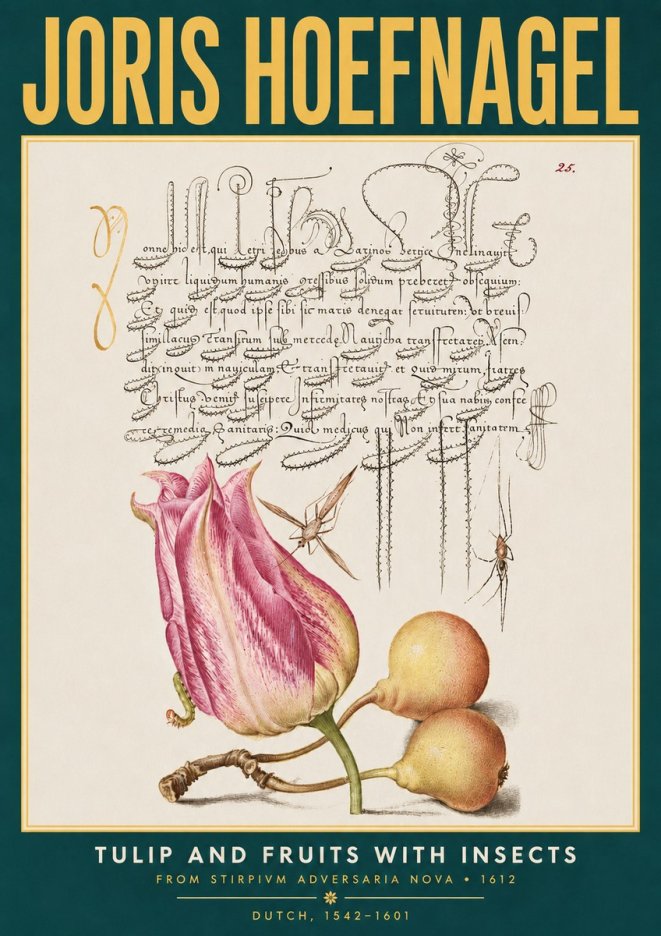 JORIS HOEFNAGEL
25.
onne hic est qui Petri pedibus a Marinos vertice Inclinavit
liquidum humanis gressibus solidum preberet obsequium:
Et quid est quod ipse sibi sic maris denegat servituten: ut brevis
simillacus Transitum sub mercede Nauticha transfretaret. Asen:
dit inquit in naviculam, & transfretavit et Quid mirum, fratres
Christus venit suscipere Infirmitates nostras Et sua nobis confer
re remedia Sanitatis: Quia medicus qui Non infert sanitatem
TULIP AND FRUITS WITH INSECTS
FROM STIRPIVM ADVERSARIA NOVA • 1612
DUTCH, 1542–1601